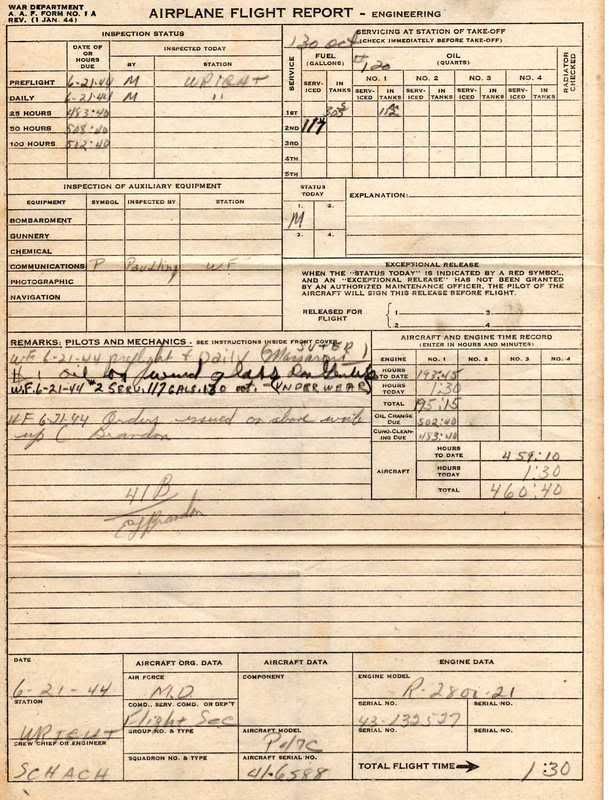 WAR DEPARTMENT
A. A. F. FORM NO. 1 A
REV. (1 JAN. 44)
AIRPLANE FLIGHT REPORT - ENGINEERING
INSPECTION STATUS
DATE OF OR HOURS DUE
INSPECTED TODAY
BY
STATION
PREFLIGHT 6-21-44 M WRIGHT
DAILY 6-21-44 M "
25 HOURS 483:40
50 HOURS 508:40
100 HOURS 502:40
SERVICING AT STATION OF TAKE-OFF
(CHECK IMMEDIATELY BEFORE TAKE-OFF)
130 oct
120
SERVICE
FUEL (GALLONS)
OIL (QUARTS)
RADIATOR CHECKED
NO. 1 NO. 2 NO. 3 NO. 4
SERV-ICED IN TANKS SERV-ICED IN TANKS SERV-ICED IN TANKS SERV-ICED IN TANKS SERV-ICED IN TANKS
1ST 305
2ND 117
3RD
4TH
5TH
INSPECTION OF AUXILIARY EQUIPMENT
EQUIPMENT SYMBOL INSPECTED BY STATION
BOMBARDMENT
GUNNERY
CHEMICAL
COMMUNICATIONS P Paulding W.F.
PHOTOGRAPHIC
NAVIGATION
STATUS TODAY
1. 2.
M
3. 4.
EXPLANATION:
EXCEPTIONAL RELEASE
WHEN THE "STATUS TODAY" IS INDICATED BY A RED SYMBOL,
AND AN "EXCEPTIONAL RELEASE" HAS NOT BEEN GRANTED
BY AN AUTHORIZED MAINTENANCE OFFICER, THE PILOT OF THE
AIRCRAFT WILL SIGN THIS RELEASE BEFORE FLIGHT.
RELEASED FOR FLIGHT
1 3
2 4
REMARKS: PILOTS AND MECHANICS - SEE INSTRUCTIONS INSIDE FRONT COVER
W.F. 6-21-44 preflight & Daily
#1 oil
W.F. 6-21-44 #2 Serv. 117 GALS. 130 oct. - (UNDERWEAR)
W.F 6-21-44 Orders issued on above write
up C Brandon
41 B
Brandon
AIRCRAFT AND ENGINE TIME RECORD
(ENTER IN HOURS AND MINUTES)
ENGINE NO. 1 NO. 2 NO. 3 NO. 4
HOURS TO DATE 193:45
HOURS TODAY 1:30
TOTAL 195:15
OIL CHANGE DUE 502:40
CUNO.CLEAN-ING DUE 483:40
AIRCRAFT
HOURS TO DATE 459:10
HOURS TODAY 1:30
TOTAL 460:40
DATE
6-21-44
STATION
WRIGHT
CREW CHIEF OR ENGINEER
SCHACH
AIRCRAFT ORG. DATA
AIR FORCE
M.D.
COMD., SERV. COMD. OR DEP'T
Flight Sec
GROUP NO. & TYPE
SQUADRON NO. & TYPE
AIRCRAFT DATA
COMPONENT
AIRCRAFT MODEL
P-47C
AIRCRAFT SERIAL NO.
41-6588
ENGINE DATA
ENGINE MODEL
R-2800-21
SERIAL NO. SERIAL NO.
43-132527
SERIAL NO. SERIAL NO.
TOTAL FLIGHT TIME 1:30